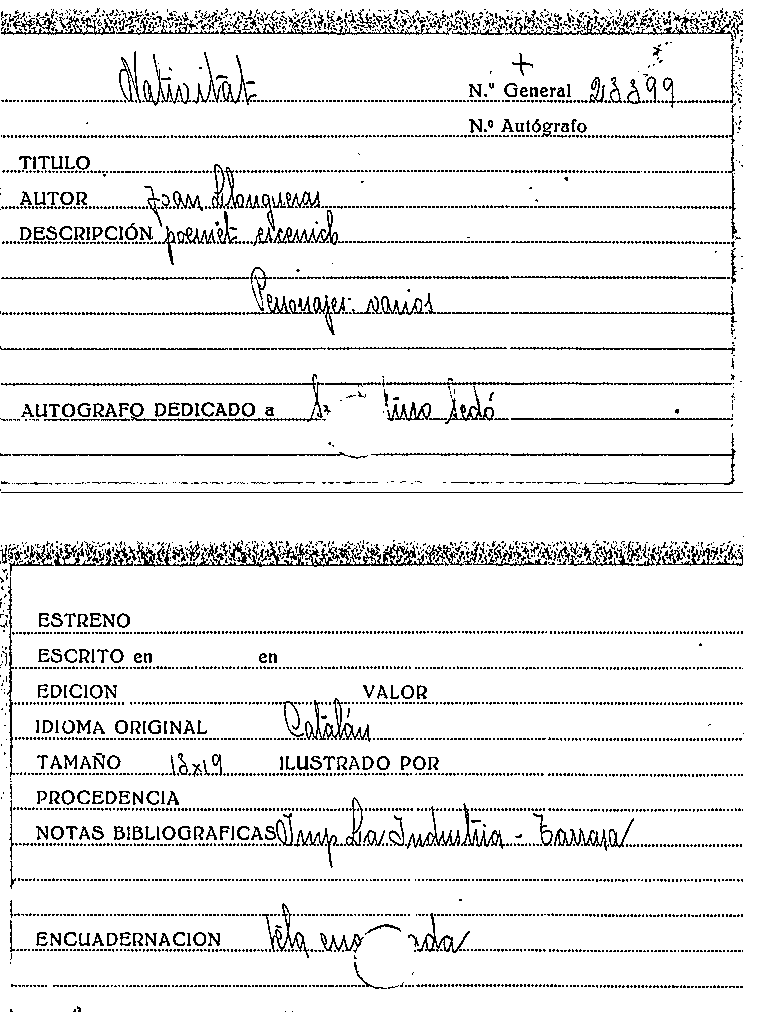 Nativitat
N.º General 23399
N.º Autógrafo
TITULO
AUTOR Joan Llongueras
DESCRIPCIÓN poemet escenich
Personajes: varios
AUTOGRAFO DEDICADO a Sedó
ESTRENO
ESCRITO en en
EDICION VALOR
IDIOMA ORIGINAL Catalán
TAMAÑO 13x19 ILUSTRADO POR
PROCEDENCIA
NOTAS BIBLIOGRAFICAS Imp La Industria - Tarrasa
ENCUADERNACION tela